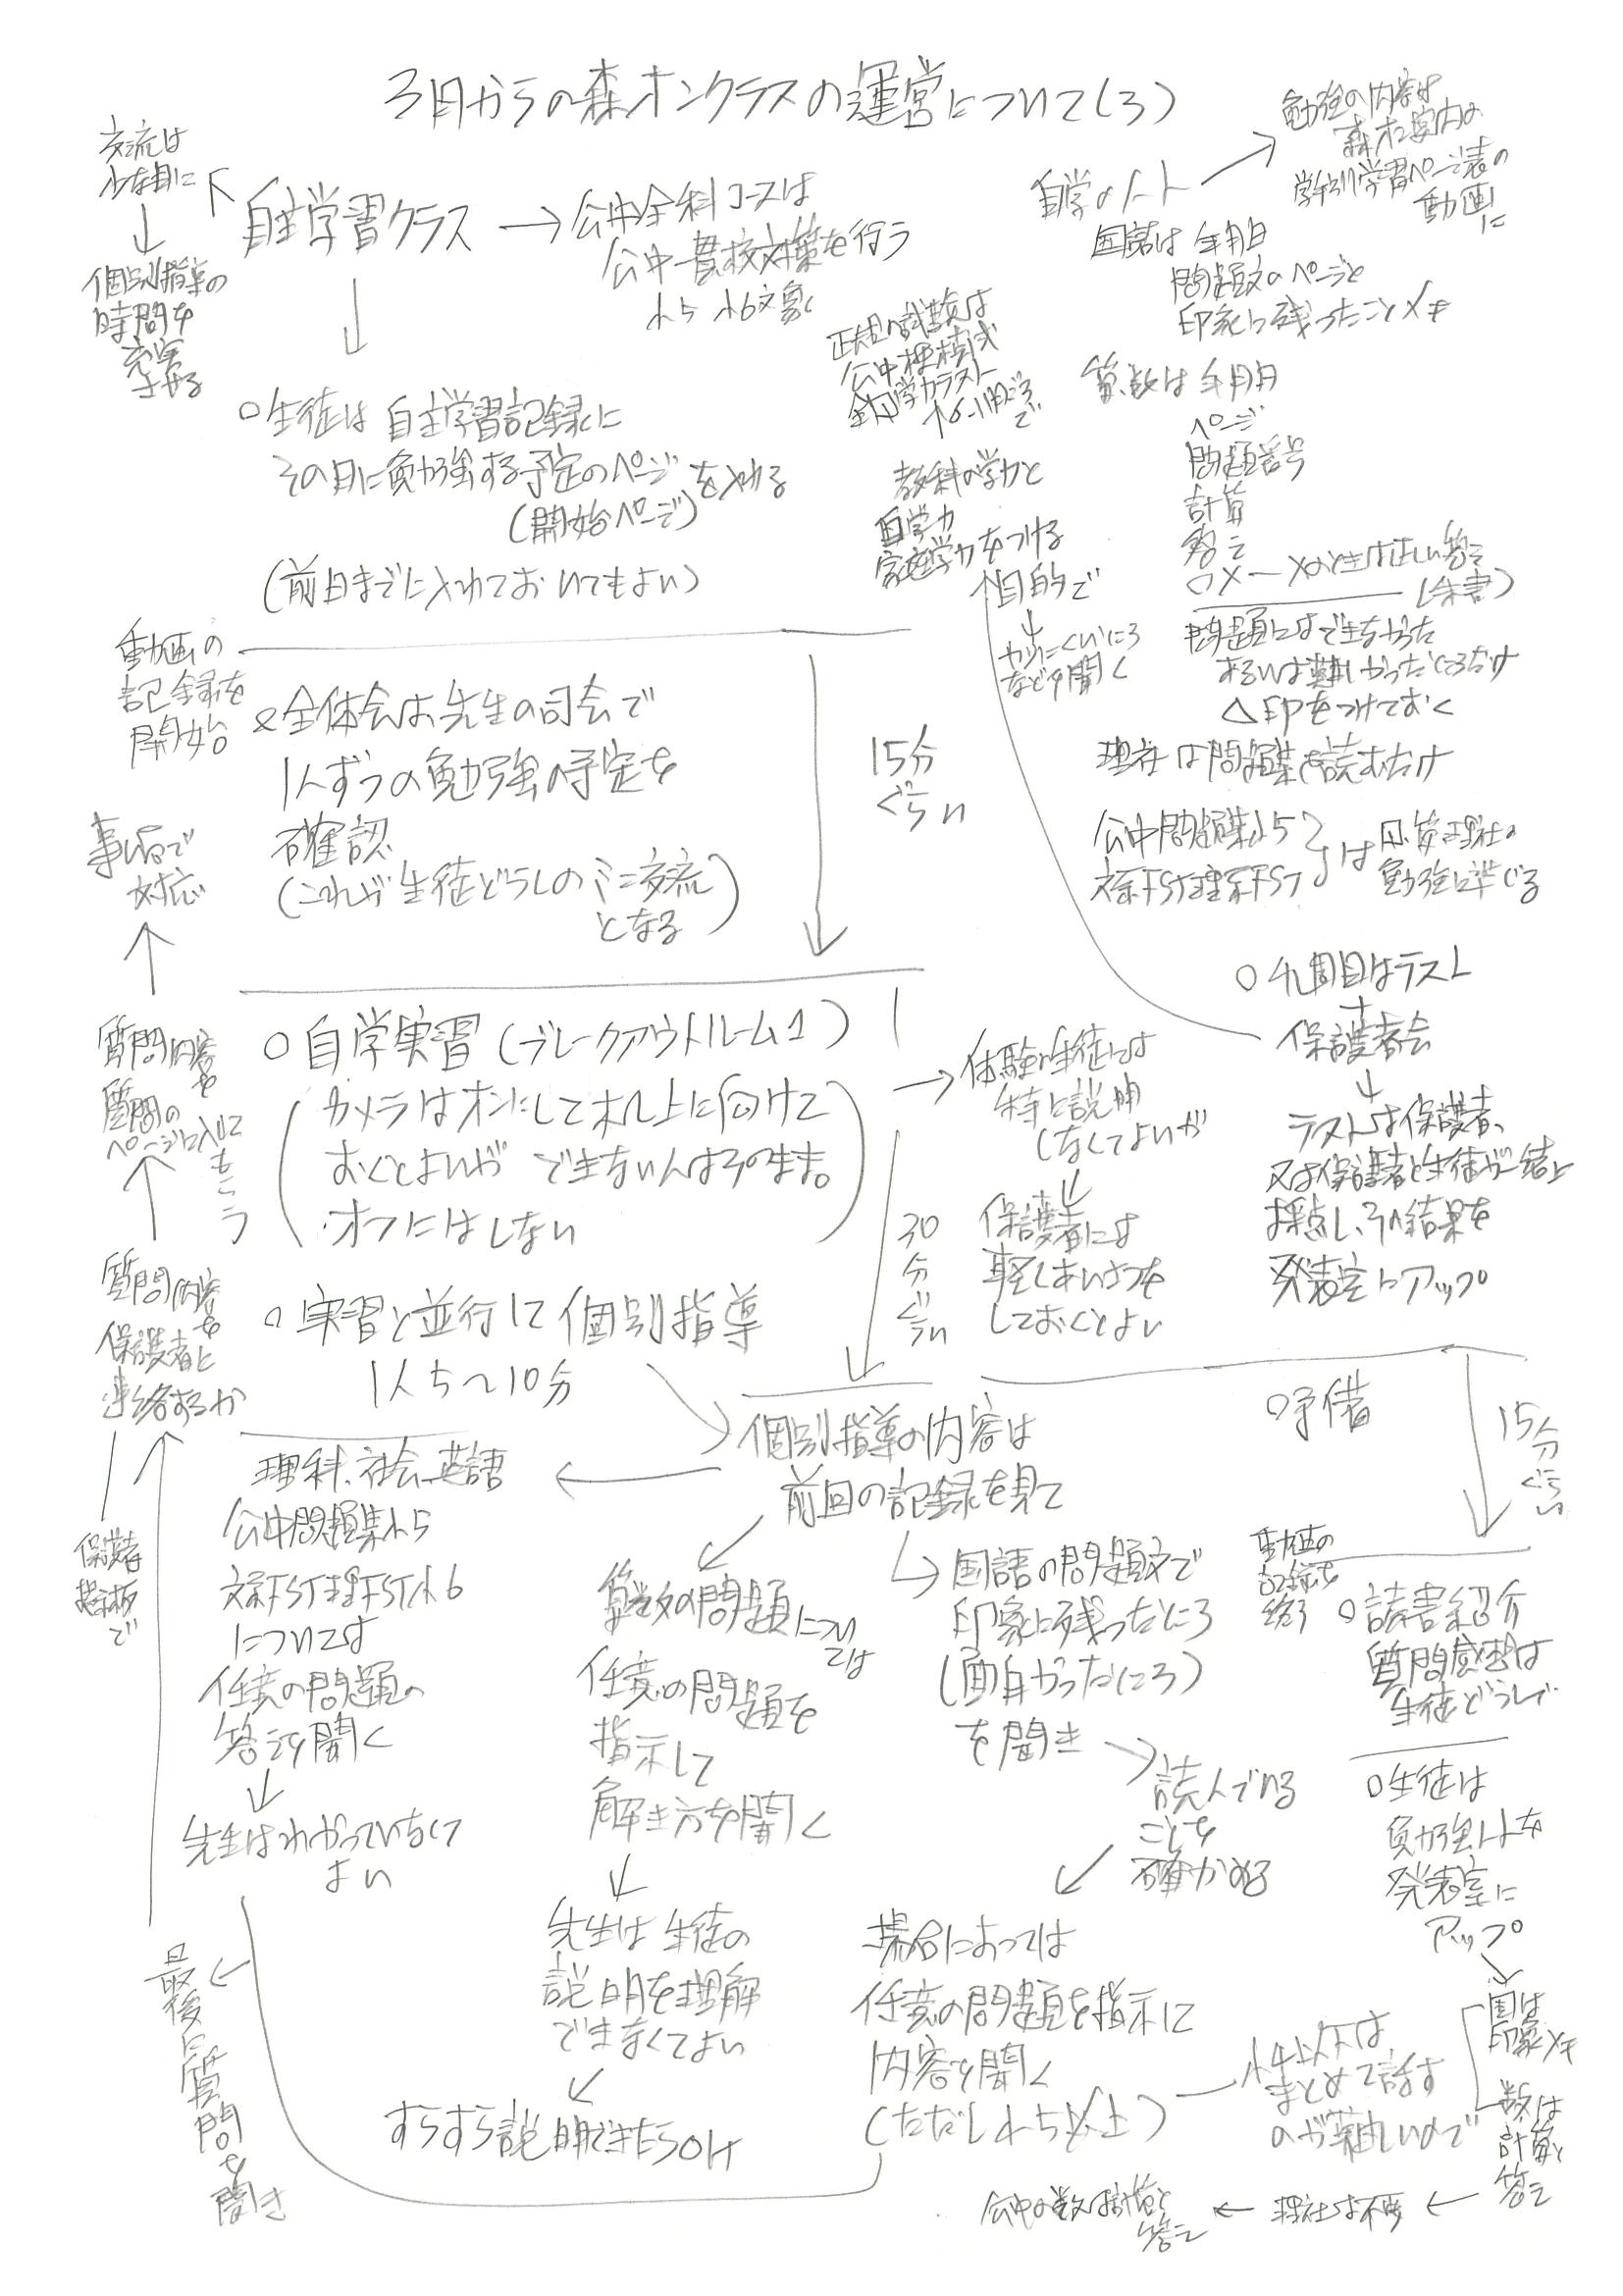 3月からの森オンクラスの運営について(3)
交流は
少な目に
↓
個別指導の
時間を
充実
させる
自主学習クラス → 公中全科コースは
公中一貫校対策を行う
小5 小6対象
○生徒は 自主学習記録に
その日に勉強する予定のページ
(開始ページ)
を入れる
(前日までに入れておいてもよい)
動画の
記録を
開始
全体会は、先生の司会で
1人ずつの勉強の予定を
確認
(これが生徒どうしのミニ交流
となる)
15分
ぐらい
○自学実習(ブレークアウトルーム1)
(カメラはオンにして机上に向けて
おくとよいが できない人はそのまま。
オフにはしない)
→体験生徒には
特に説明
しなくてよいが
↓
保護者には
軽くあいさつを
しておくとよい
30
分
ぐらい
○実習と並行して個別指導
1人5〜10分
個別指導の内容は
前回の記録を見て
国語の問題文で
印象に残ったところ
(面白かったところ)
を聞き
読んでいる
ことを
確かめる
場合によっては
任意の問題を指示して
内容を聞く
(ただし小5以上)
小4以下は
まとめて話す
のが難しいので
算数の問題については
任意の問題を
指示して
解き方を聞く
↓
先生は生徒の
説明を理解
できなくてよい
すらすら説明できたらOK
理科、社会、英語
公中問題集小5
文系FST理FST小6
については
任意の問題の
答えを聞く
↓
先生はわかっていなくて
よい
最後に質問を聞き
質問内容を
保護者に
連絡するか
保護者
掲示板
で
質問内容を
質問の
ページに入れて
もらう
事務局で
対応
自学のノート
勉強の内容は
森オン案内の
学年別学習ページ表の
動画に
国語は 年月日
問題文のページと
印象に残ったことメモ
算数は 年月日
ページ
問題番号
計算
答え
○× ― ×のときは正しい答え
(朱書)
問題にはできなかった
あるいは難しかったところだけ
△印をつけておく
理社は問題集を読むだけ
公中問題集小5
文系FST理系FST
は国、算、理社の
勉強に準じる
正規の試験は
公中模擬試
全国学力テスト
教科の学力と
自学力
家庭学力をつける
目的で
などを聞く
○4週目はテスト
+
保護者会
↓
テストは保護者、
又は保護者と生徒が一緒に
採点し、その結果を
発表室にアップ
○予備
15分
ぐらい
動画の
記録を
終了
○読書紹介
質問感想は
生徒どうしで
○生徒は
発表室に
アップ
国は
印象メモ
数は
計算と
答え
理社は不要
公中の数は計算と
答え